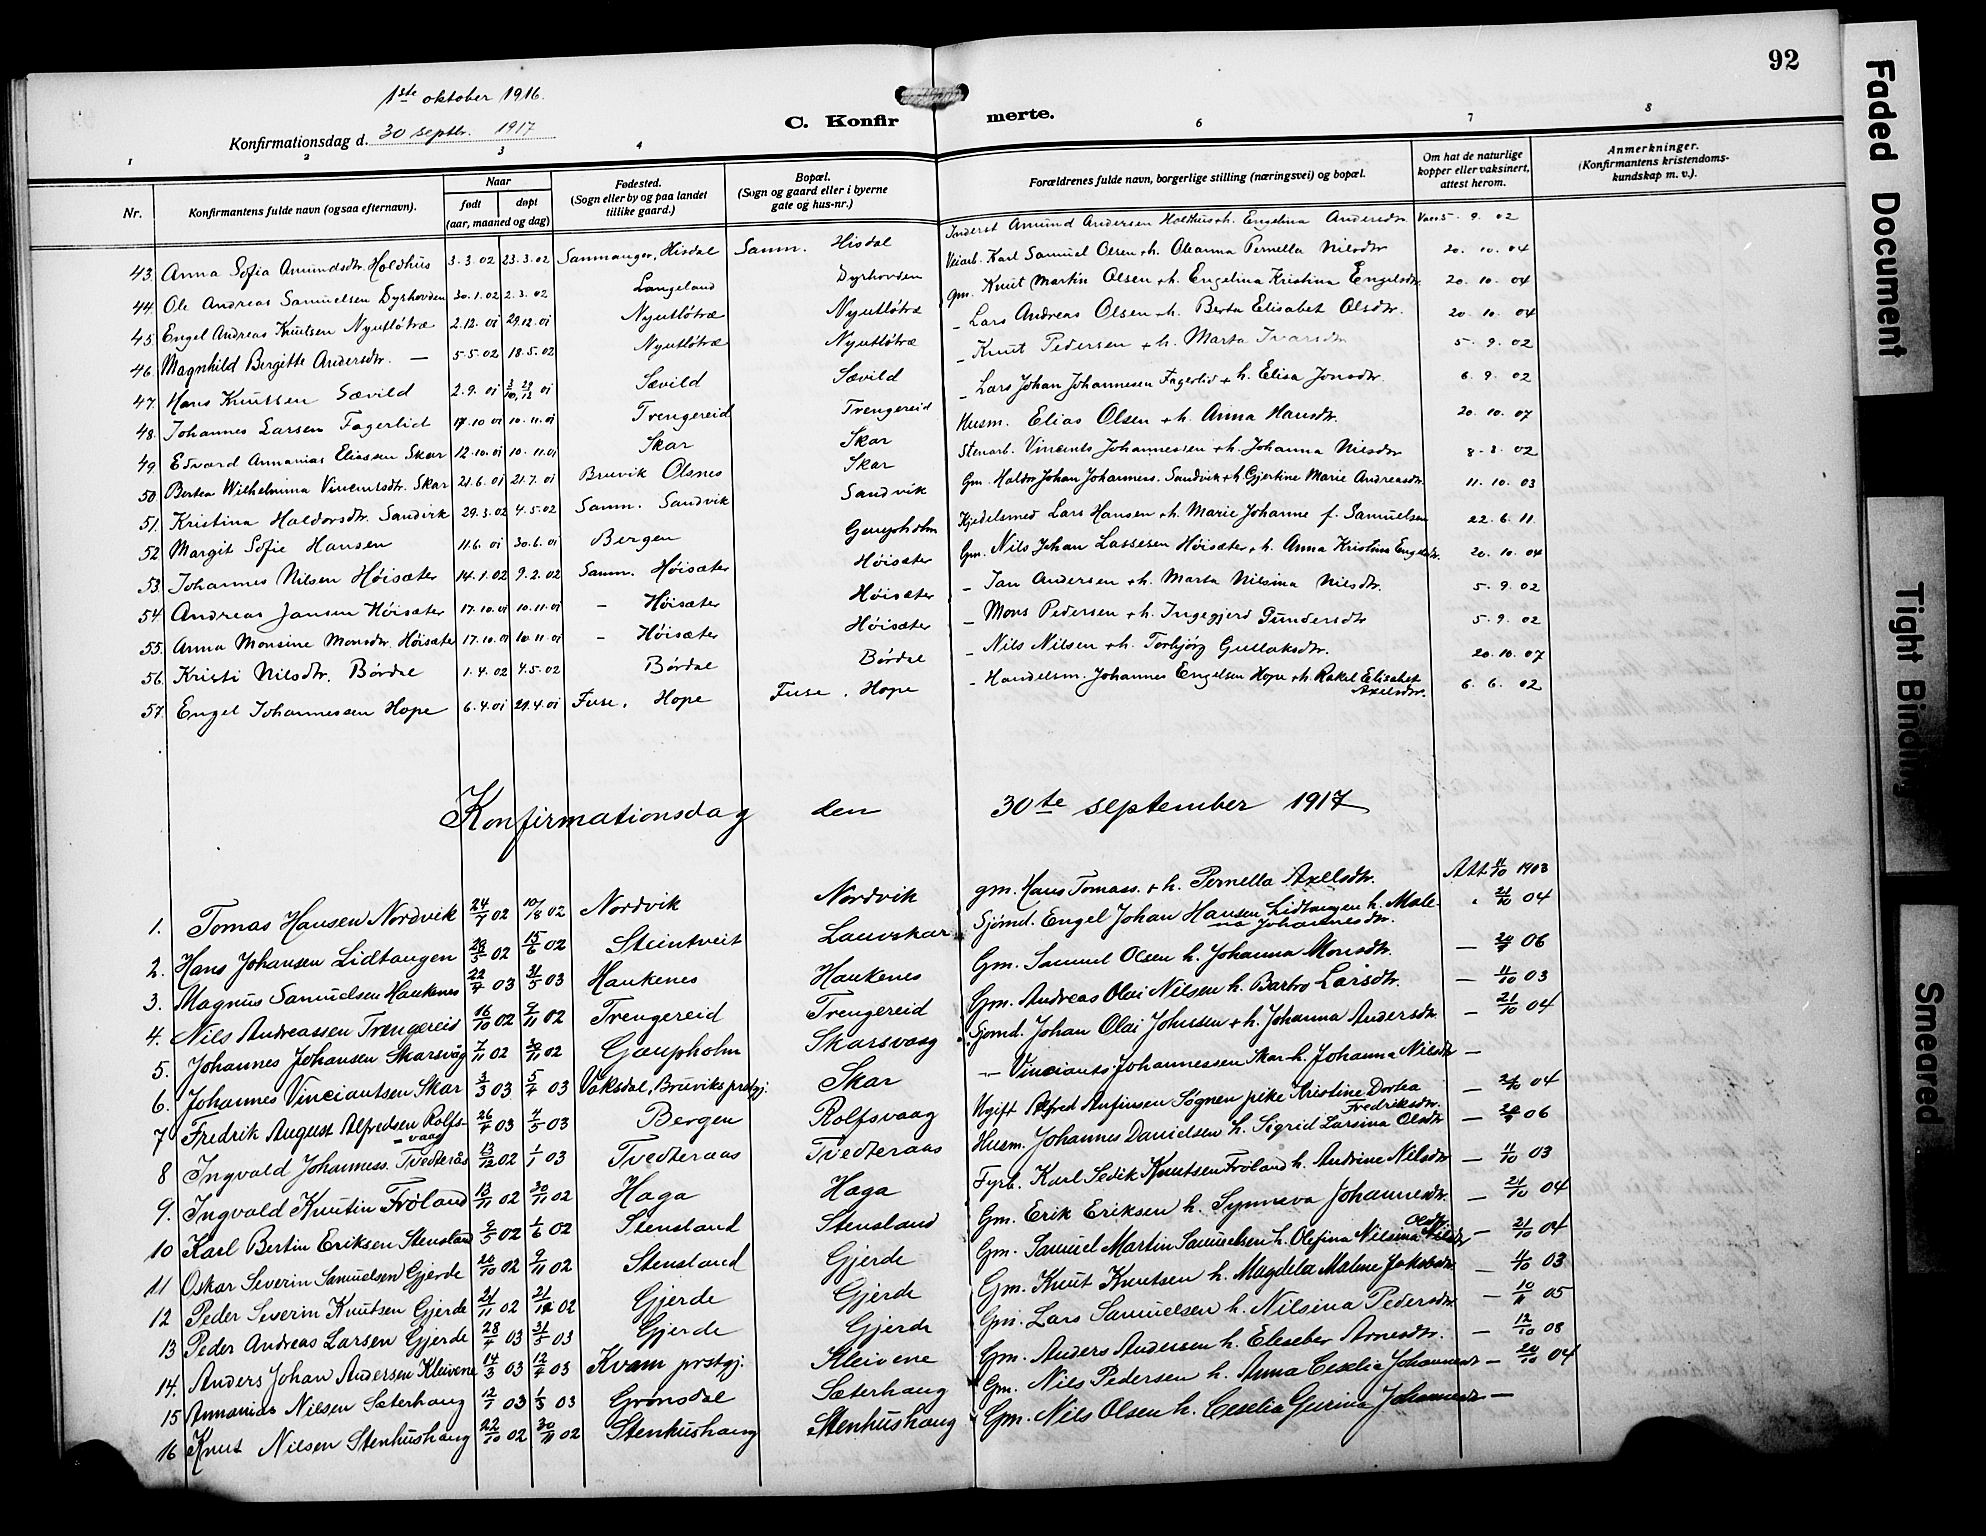 92
1ste oktober 1916.
C. Konfirmerte.
Konfirmationsdag d. 30 septbr. 1917
1 2 3 4 6 7 8
Nr.
Konfirmantens fulde navn (ogsaa efternavn).
Naar
født
døpt
(aar, maaned og dag)
Fødested.
(Sogn eller by og paa landet
tillike gaard.)
Bopæl.
(Sogn og gaard eller i byerne
gate og hus-nr.)
Forældrenes fulde navn, borgerlige stilling (næringsvei) og bopæl.
Om hat de naturlige
kopper eller vaksinert,
attest herom.
Anmerkninger.
(Konfirmantens kristendoms-
kundskap m. v.).
43. Anna Sofia Amundsdtr. Holdhus 3.3.02 23.3.02 Sammanger, Hisdal Samm. Hisdal Inderst Amund Andersen Holdhus + h. Engelina Andersdtr. 5. 9. 02
44. Ole Andreas Samuelsen Dyrhovden 30.1.02 2.3.02 Langeland Dyrhovden Veiarb. Karl Samuel Olsen + h. Oleanna Pernella Nilsdtr 20. 10. 04
45. Engel Andreas Knutsen Nyutlötræ 2.12.01 29.12.01 Nyutlötræ Nyutlötræ gm. Knut Martin Olsen + h. Engelina Kristina Engelsdtr. 20. 10. 04
46. Magnhild Bergitte Andersdtr. — 5.5.02 18.5.02 Nyutlötræ Nyutlötræ - Lars Andreas Olsen + h. Berta Elisabet Olsdtr. 20. 10. 04
47. Hans Knutsen Sævild 2.9.01 Sævild Sævild - Knut Pedersen + h. Marta Ivarsdtr 5. 9. 02
48. Johannes Larsen Fagerlid 17.10.01 10.11.01 Trengereid Trengereid - Lars Johan Johannesen Fagerlid + h. Elisa Jonsdtr. 6. 9. 02
49 Edvard Annanias Eliassen Skar 12.10.01 10.11.01 Skar Skar Husm. Elias Olsen + h. Anna Hansdtr. 20. 10. 07
50. Bertea Wilhelmina Vincentsdtr. Skar 21.6.01 21.7.01 Bruvik Olsnes Skar Stenarb. Vincents Johannessen + h. Johanna Nilsdtr 8. 8. 02
51. Kristina Haldorsdtr. Sandvik 29.3.02 4.5.02 Samm. Sandvik Sandvik Gm. Haldor Johan Johannes. Sandvik + h. Gjertine Marie Andreasdtr. 11. 10. 03
52 Margit Sofie Hansen 11.6.01 30.6.01 Bergen Gaupholm Kjedelsmed Lars Hansen + h. Marie Johanne f. Samuelsen 22. 6. 11.
53. Johannes Nilsen Höisæter 14.1.02 9.2.02 Samm. Höisæter Höisæter Gm. Nils Johan Lassesen Höisæter + h. Anna Kristina Engelsdtr. 20. 10. 04
54. Andreas Jansen Höisæter 17.10.01 10.11.01 - Höisæter Höisæter - Jan Andersen + h. Marta Nilsina Nilsdtr. 5. 9. 02
55. Anna Monsine Monsdtr. Höisæter 17.10.01 10.11.01 - Höisæter Höisæter - Mons Pedersen + h. Ingegjerd Gundersdtr 5. 9. 02
56. Kristi Nilsdtr. Bördal 1.4.02 4.5.02 Bördal Bördal - Nils Nilsen + h. Torbjörg Gullaksdtr. 20. 10. 07
57. Engel Johannessen Hope 6.4.01 21.4.01 Fuse. Hope Fuse. Hope - Handelsm. Johannes Engelsen Hope + h. Rakel Elisabet Axelsdtr. 6. 6. 02
Konfirmationsdag den 30te september 1917
1. Tomas Hansen Nordvik 24/7 02 10/8 02 Nordvik Nordvik gm. Hans Tomass. + h. Pernella Axelsdtr. Att. 11/10 1903
2. Hans Johansen Lidtangen 29/5 02 15/6 02 Steintveit Lauvskar Sjömd. Engel Johan Hansen Lidtangen h. Malena Johannesdtr. 21/10 04
3. Magnus Samuelsen Haukenes 22/4 03 31/5 03 Haukenes Haukenes Gm. Samuel Olsen h. Johanna Monsdtr. — 06
4. Nils Andreassen Trengereid 16/10 02 9/11 02 Trengereid Trengereid Gm. Andreas Olai Nilsen h. Barbro Larsdtr. — 11/10 03
5. Johannes Johansen Skarsvåg 7/11 02 30/11 02 Gaupholm Skarsvaag Sjömd. Johan Olai Johnsen + h. Johanna Andersdtr. — 21/10 04
6. Johannes Vinciantsen Skar 3/3 03 5/4 03 Vaksdal, Bruviks prstgj. Skar -"- Vincients Johannessen Skar h. Johanna Nilsdtr —
7 Fredrik August Alfredsen Rolfs-vaag 26/4 03 03 Bergen Rolfsvaag Ugift Alfred Anfinsen Søgnen pike Kristine Dortea Fredriksdtr. — 04
8 Ingvald Johanness. Tvedterås 13/12 02 1/1 03 Tvedteraas Tvedteraas Husm. Johannes Danielsen h. Sigrid Larsina Olsdtr — 06
9. Ingvald Knutin Fröland 13/11 02 30/11 02 Haga Haga Fyrb. Karl Sedik Knutsen Fröland h. Andrine Nilsdtr — 11/10 03
10 Karl Bertin Eriksen Stensland 2/5 02 1/6 02 Stensland Stensland Gm. Erik Eriksen h. Synneva Johannesdtr. — 21/10 04
11 Oskar Severin Samuelsen Gjerde 20/10 02 9/11 02 Stensland Gjerde Gm. Samuel Martin Samuelsen h. Olefina Nilsina Olsdtr. — 21/10 04
12 Peder Severin Knutsen Gjerde 21/11 02 02 Gjerde Gjerde Gm. Knut Knutsen h. Magdela Malene Jakobsdtr — 11/10 03
13 Peder Andreas Larsen Gjerde 28/4 03 31/5 03 Gjerde Gjerde Gm. Lars Samuelsen h. Nilsina Pedersdtr — 10/11 05
14. Anders Johan Andersen Kleivene 14/3 03 12/4 03 Kvam prstgj. Kleivene Gm. Anders Andersen h. Eliseber Arnesdtr. — 12/10 08
15 Annanias Nilsen Sæterhaug 03 03 Grönsdal Sæterhaug Gm. Nils Pedersen h. Anna Ceselia Johannesdtr — 04
16 Knut Nilsen Stenhushaug 22/10 02 30/11 02 Stenhushaug Stenhushaug Gm. Nils Olsen h. Ceselia Gurina Johannesdtr —
Faded Document
Tight Binding
Smeared